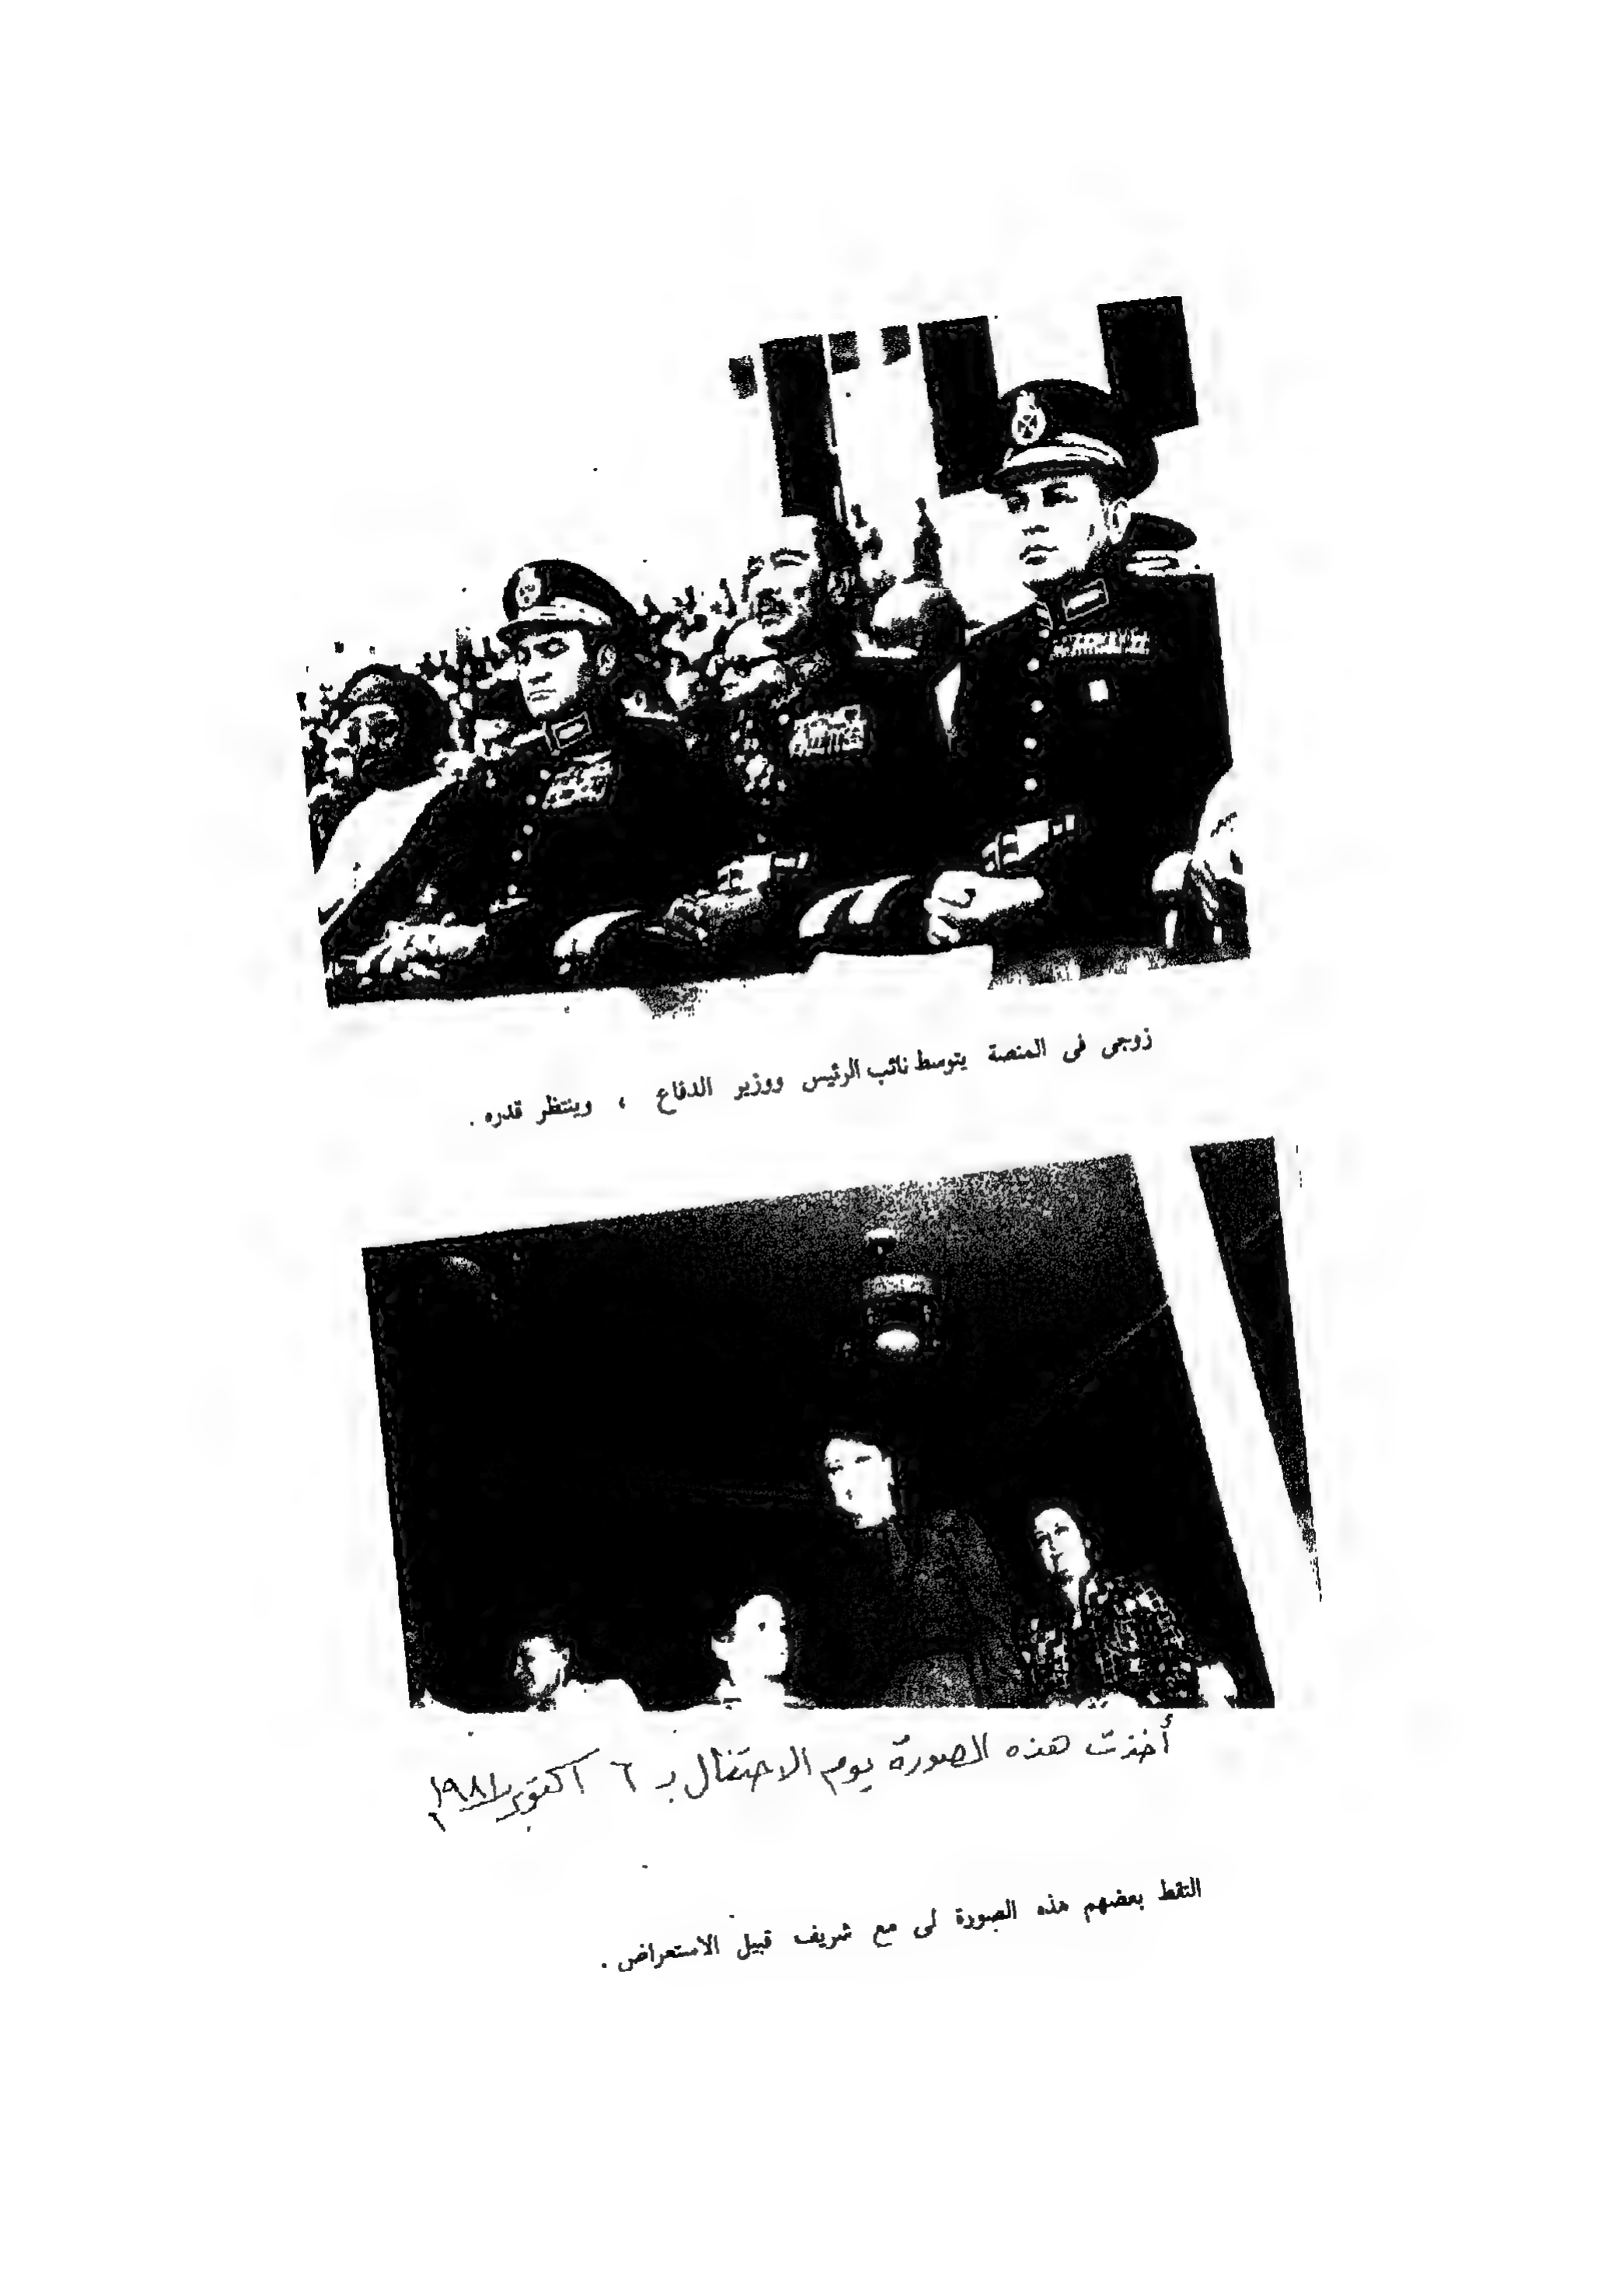 زوجى فى المنصة يتوسط نائب الرئيس ووزير الدفاع ، وينتظر قدره .
أخذت هذه الصورة يوم الاحتفال بـ ٦ اكتوبر ١٩٨١
التقط بعضهم هذه الصورة لى مع شريف قبيل الاستعراض .